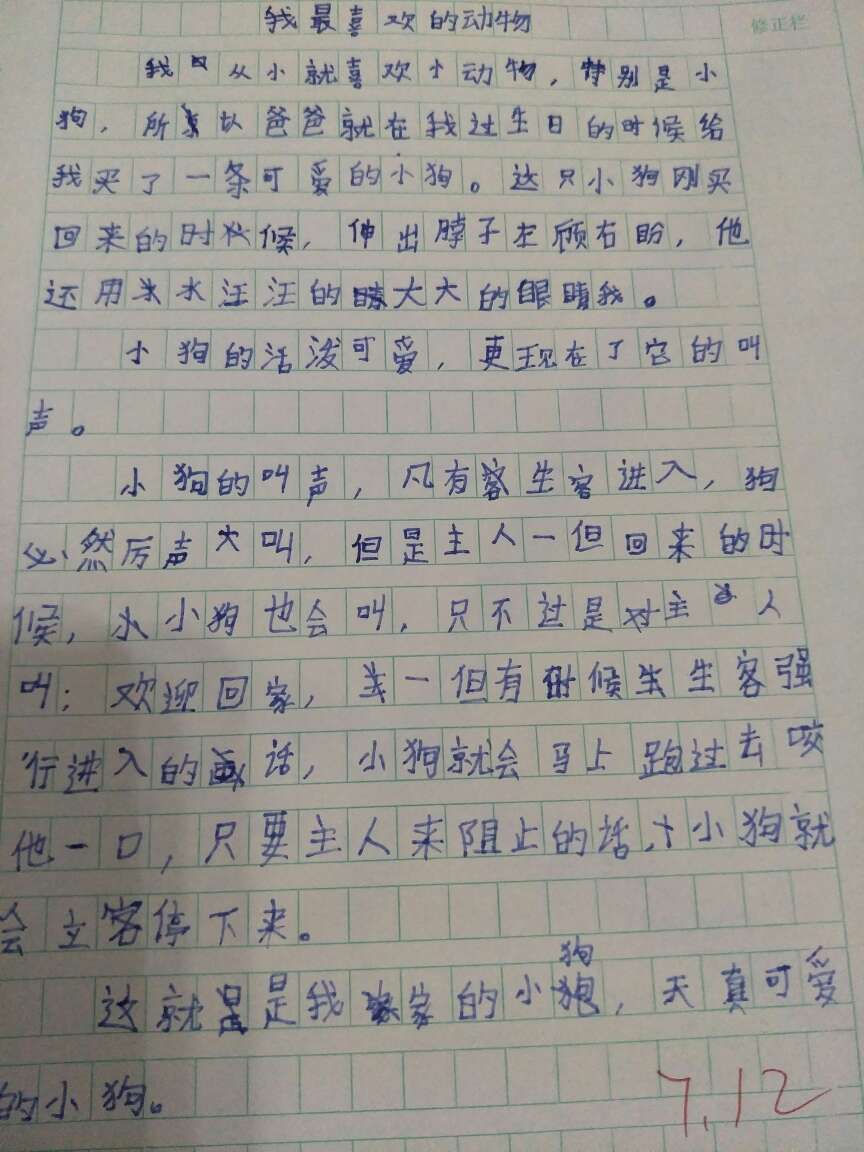 我最喜欢的动物
修正栏
我从小就喜欢小动物，特别是小
狗，所以爸爸就在我过生日的时候给
我买了一条可爱的小狗。这只小狗刚买
回来的时候，伸出脖子左顾右盼，他
还用水汪汪的大大的眼睛我。
小狗的活泼可爱，更现在了它的叫
声。
小狗的叫声，凡有生客进入，狗
必然厉声大叫，但是主人一但回来的时
候，小狗也会叫，只不过是对主人
叫：欢迎回家，一但有时候生客强
行进入的话，小狗就会马上跑过去咬
他一口，只要主人来阻止的话，小狗就
会立客停下来。
狗
这就是是我家的小，天真可爱
的小狗。
7.12